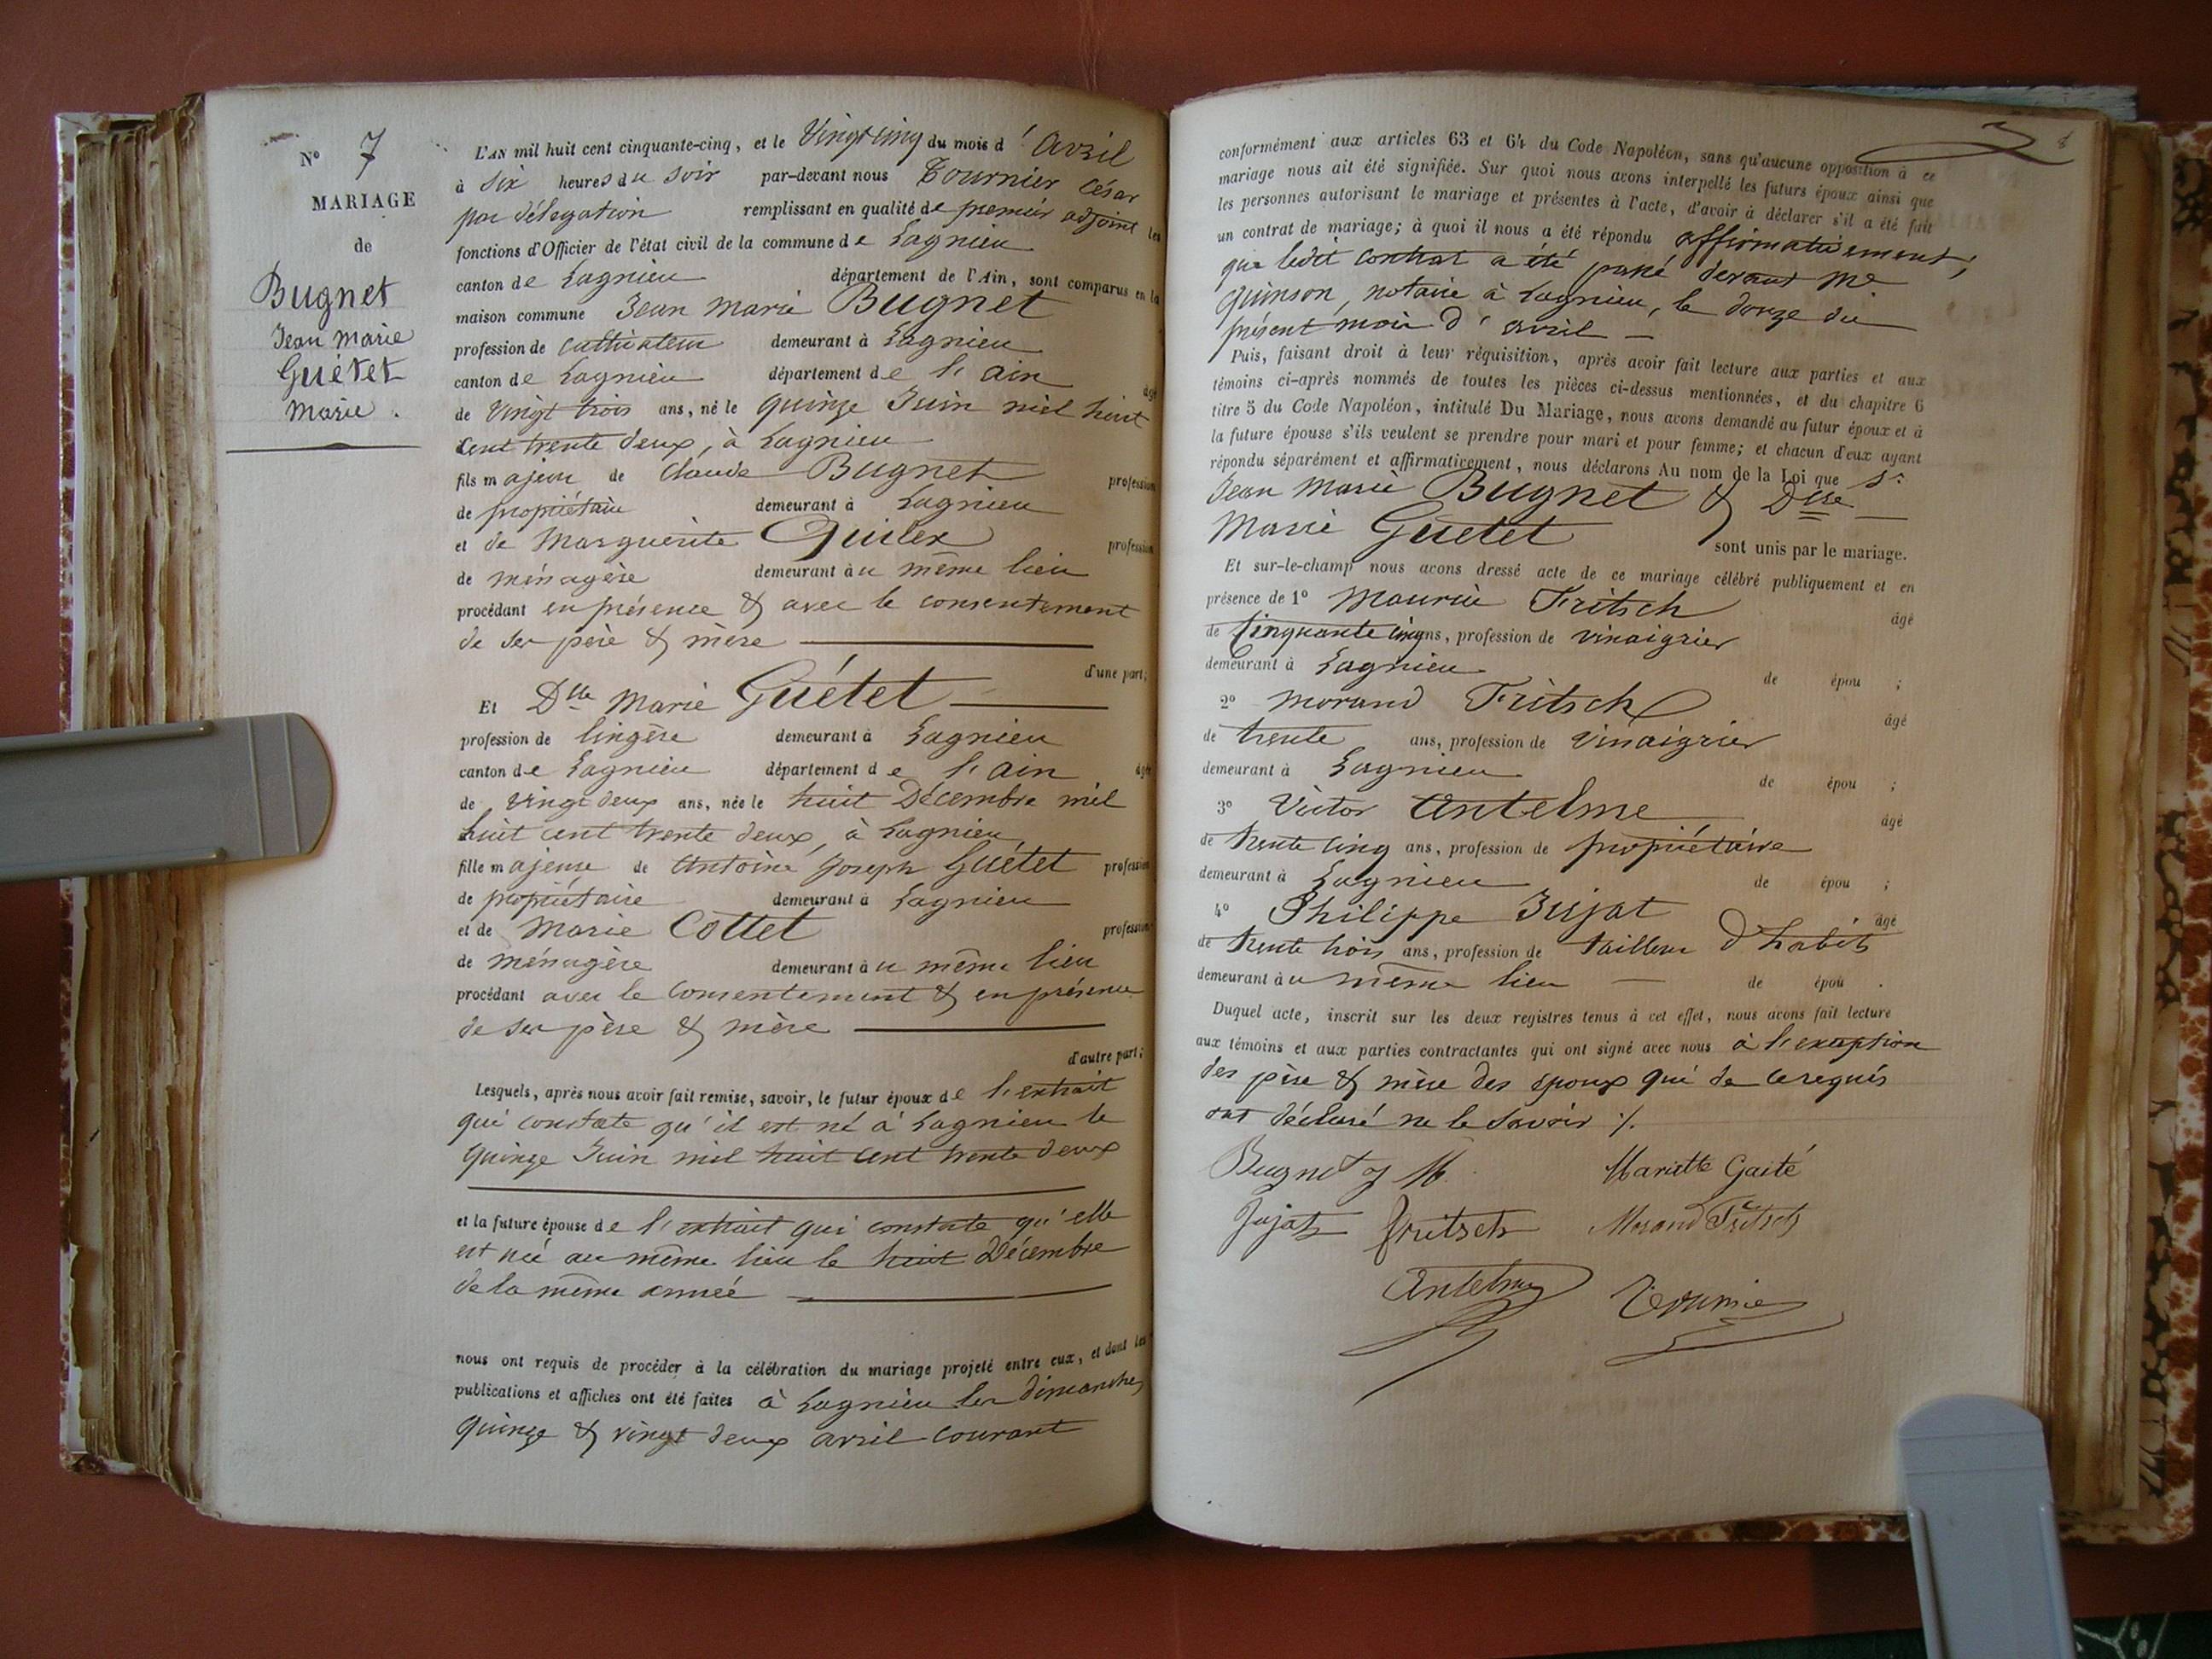 N° 7
MARIAGE
de
Bugnet
Jean Marie
Guétet
Marie .
L'AN mil huit cent cinquante-cinq, et le Vingt cinq du mois d' Avril
à Six heures du Soir par-devant nous Tournier César
par délégation remplissant en qualité de premier adjoint les
fonctions d'Officier de l'état civil de la commune de Lagnieu
canton de Lagnieu département de l'Ain, sont comparus en la
maison commune Jean Marie Bugnet
profession de cultivateur demeurant à Lagnieu
canton de Lagnieu département de l'ain âgé
de vingt trois ans, né le quinze Juin mil huit
cent trente deux, à Lagnieu
fils majeur de Claude Bugnet profession
de propriétaire demeurant à Lagnieu
et de Marguerite Quilex profession
de ménagère demeurant au même lieu
procédant en présence & avec le consentement
de ses père & mère
d'une part;
Et Dlle Marie Guétet
profession de lingère demeurant à Lagnieu
canton de Lagnieu département de l'ain âgée
de vingt deux ans, née le huit Décembre mil
huit cent trente deux, à Lagnieu
fille majeure de Antoine Joseph Guétet profession
de propriétaire demeurant à Lagnieu
et de Marie Cottet profession
de ménagère demeurant au même lieu
procédant avec le consentement & en présence
de ses père & mère
d'autre part;
Lesquels, après nous avoir fait remise, savoir, le futur époux de l'extrait
qui constate qu'il est né à Lagnieu le
quinze Juin mil huit cent trente deux
et la future épouse de l'extrait qui constate qu'elle
est née au même lieu le huit Décembre
de la même année
nous ont requis de procéder à la célébration du mariage projeté entre eux, et dont les
publications et affiches ont été faites à Lagnieu les dimanches
quinze & vingt deux avril courant
conformément aux articles 63 et 64 du Code Napoléon, sans qu'aucune opposition à ce
mariage nous ait été signifiée. Sur quoi nous avons interpellé les futurs époux ainsi que
les personnes autorisant le mariage et présentes à l'acte, d'avoir à déclarer s'il a été fait
un contrat de mariage; à quoi il nous a été répondu affirmativement,
que ledit contrat a été passé devant Me
Quinson, notaire à Lagnieu, le douze du
présent mois d'avril —
Puis, faisant droit à leur réquisition, après avoir fait lecture aux parties et aux
témoins ci-après nommés de toutes les pièces ci-dessus mentionnées, et du chapitre 6
titre 5 du Code Napoléon, intitulé Du Mariage, nous avons demandé au futur époux et à
la future épouse s'ils veulent se prendre pour mari et pour femme; et chacun d'eux ayant
répondu séparément et affirmativement, nous déclarons Au nom de la Loi que Sr
Jean Marie Bugnet & Dlle
Marie Guetet sont unis par le mariage.
Et sur-le-champ nous avons dressé acte de ce mariage célébré publiquement et en
présence de 1° Maurice Fritsch âgé
de Cinquante cinq ans, profession de vinaigrier
demeurant à Lagnieu de épou ;
2° Morand Fritsch âgé
de trente ans, profession de Vinaigrier
demeurant à Lagnieu de épou ;
3° Victor Antelme âgé
de trente cinq ans, profession de propriétaire
demeurant à Lagnieu de épou ;
4° Philippe Jujat âgé
de trente trois ans, profession de tailleur d'habits
demeurant au même lieu — de épou .
Duquel acte, inscrit sur les deux registres tenus à cet effet, nous avons fait lecture
aux témoins et aux parties contractantes qui ont signé avec nous à l'exception
des père & mère des époux qui de ce requis
ont déclaré ne le savoir ./.
Bugnet J M. Mariette Gaité
Jujat Fritsch Morand Fritsch
Antelme Tournier